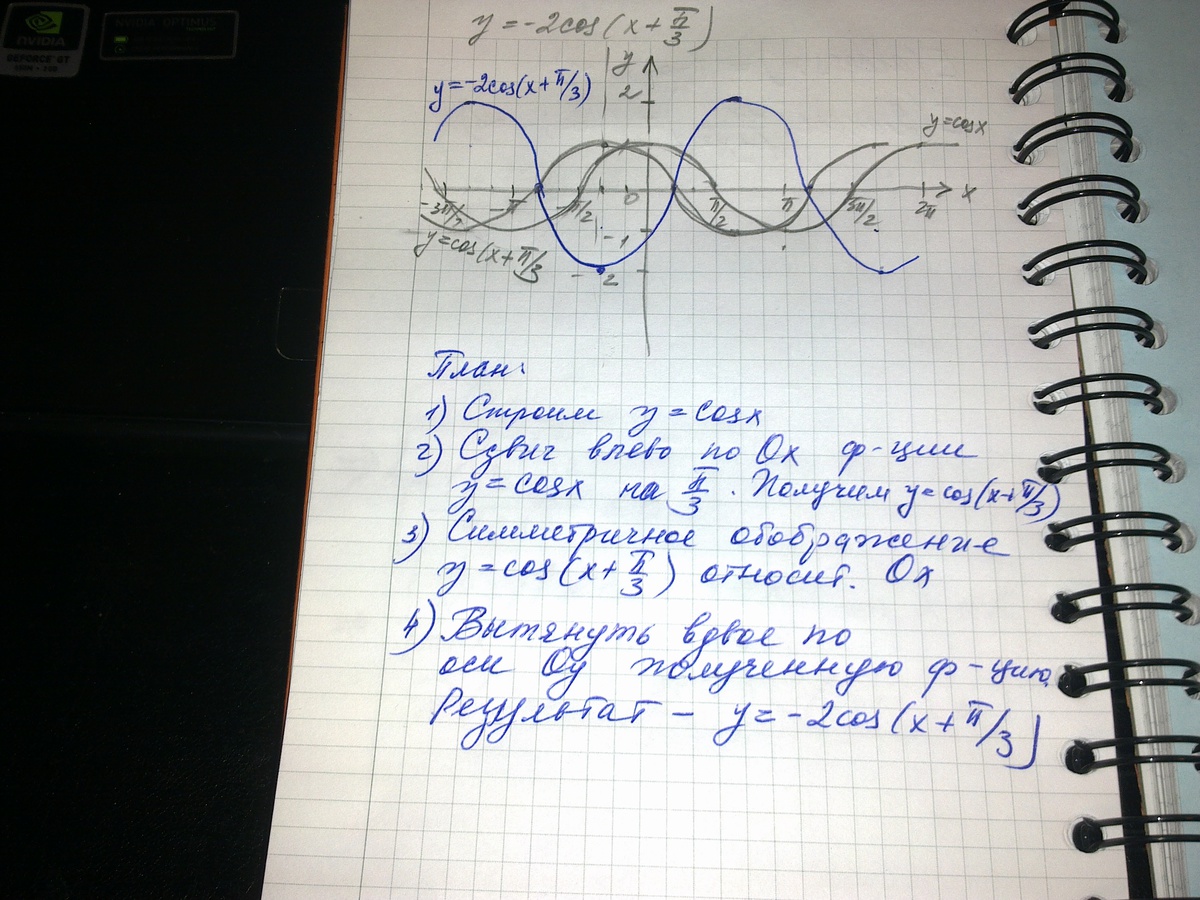 NVIDIA
GEFORCE GT
NVIDIA OPTIMUS
y = -2cos(x + π/3)
y
y=-2cos(x+π/3)
2
y=cosx
-3π/2 -π -π/2 0 π/2 π 3π/2 2π x
-1
y=cos(x+π/3
-2
План:
1) Строим y=cosx
2) Сдвиг влево по Ox ф-ции
y=cosx на π/3. Получим y=cos(x+π/3)
3) Симметричное обображение
y=cos(x+π/3) относит. Ox
4) Вытянуть вдвое по
оси Oy полученную ф-цию
Результат - y=-2cos(x+π/3)